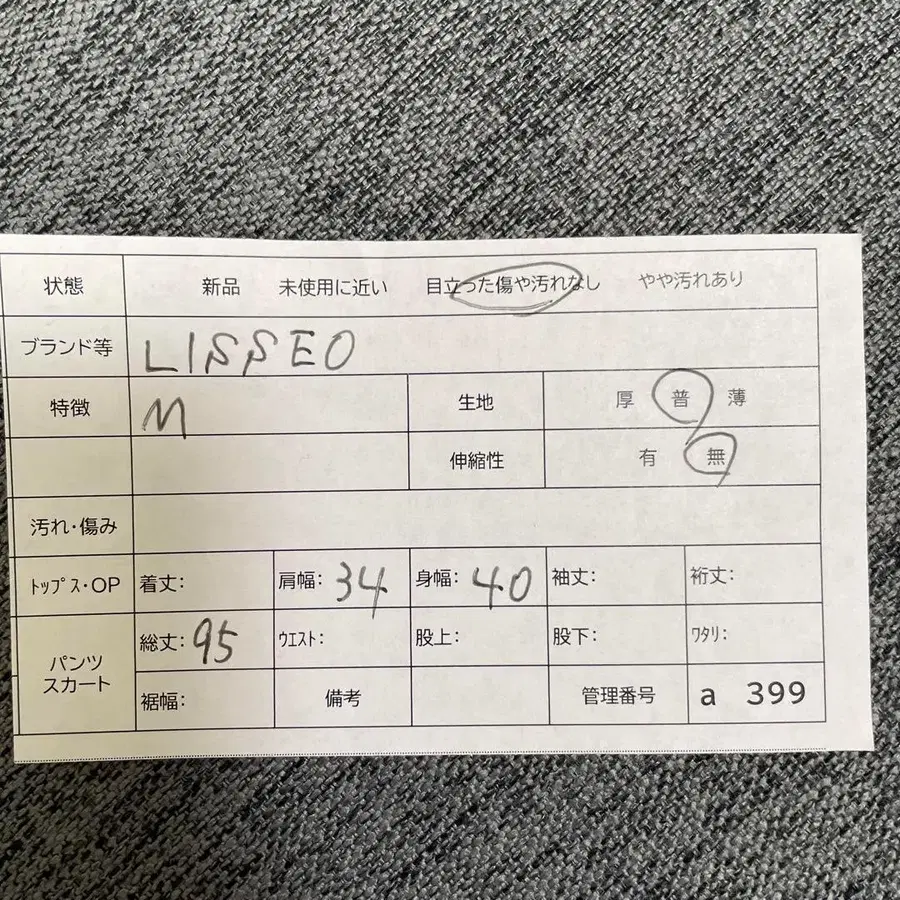 状態 新品 未使用に近い 目立った傷や汚れなし やや汚れあり
ブランド等 LISSEO
特徴 M 生地 厚 普 薄
伸縮性 有 無
汚れ・傷み
ﾄｯﾌﾟｽ・OP 着丈: 肩幅: 34 身幅: 40 袖丈: 裄丈:
パンツ
スカート
総丈: 95 ｳｴｽﾄ: 股上: 股下: ﾜﾀﾘ:
裾幅: 備考 管理番号 a 399